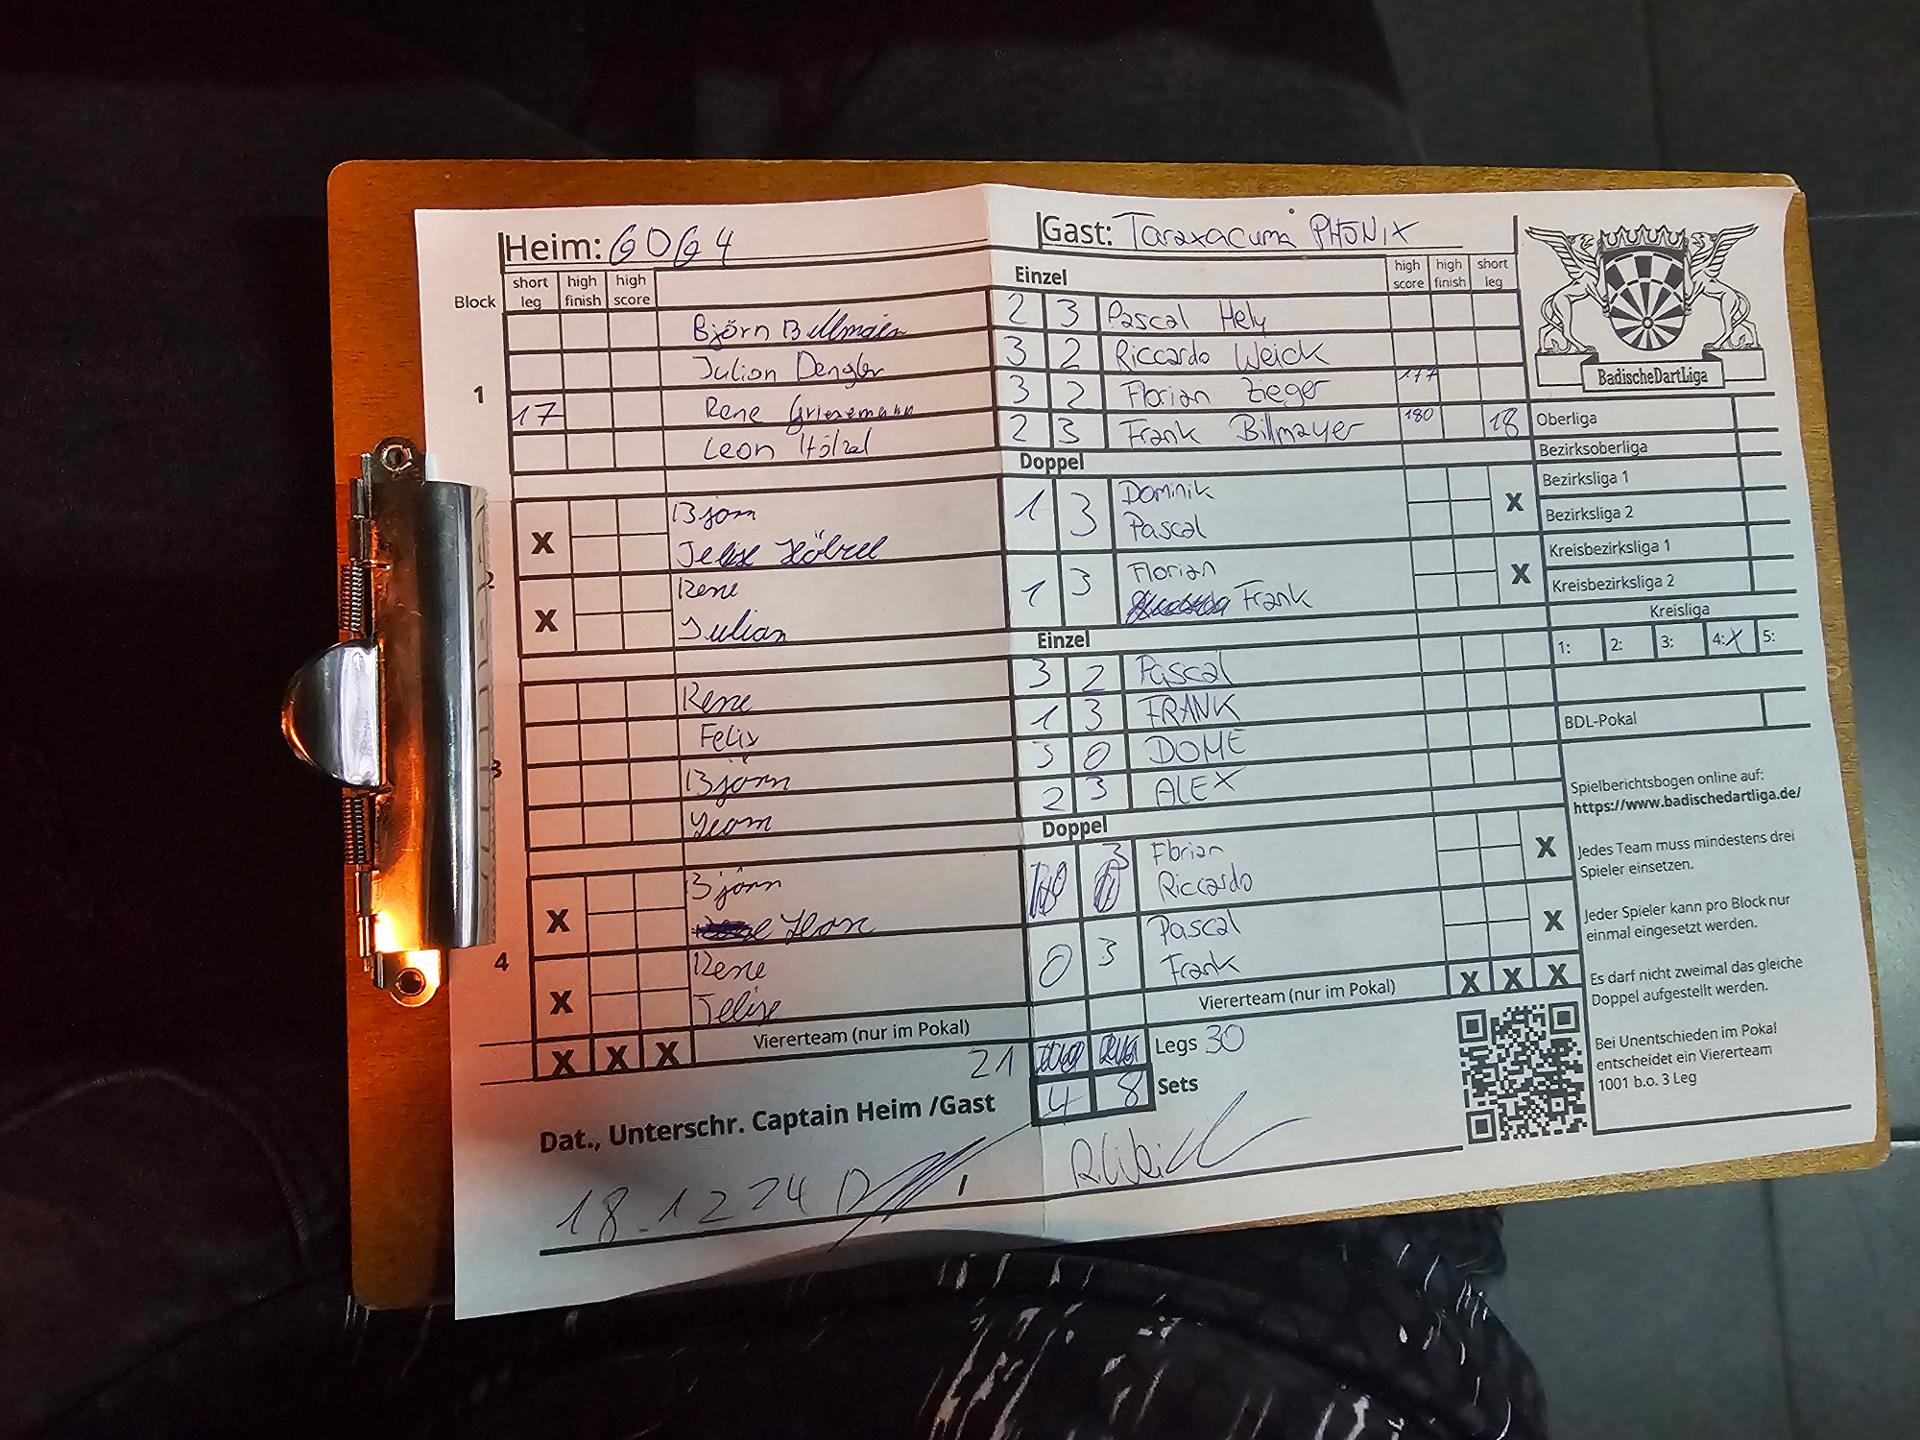 Heim: GOG4
Gast: Taraxacum PHÖNIX
Block short leg high finish high score
Einzel high score high finish short leg
Björn Billmaier 2 3 Pascal Hely
Julian Dengler 3 2 Riccardo Weick
1
17 Rene Griesemann 3 2 Florian Zieger 177
Leon Hölzel 2 3 Frank Billmayer 180 18
BadischeDartLiga
Oberliga
Bezirksoberliga
Bezirksliga 1
Bezirksliga 2
Kreisbezirksliga 1
Kreisbezirksliga 2
Kreisliga
1: 2: 3: 4:X 5:
BDL-Pokal
Doppel
X Björn 1 3 Dominik X
Hölzel Pascal
2
X Rene 1 3 Florian X
Julian Frank
Einzel
Rene 3 2 Pascal
Felix 1 3 FRANK
3
Björn 3 0 DOME
Leon 2 3 ALEX
Doppel
X Björn 0 3 Florian X
Leon Riccardo
4
X Rene 0 3 Pascal X
Felix Frank
Viererteam (nur im Pokal) X X X
X X X Viererteam (nur im Pokal)
21 Legs 30
4 8 Sets
Dat., Unterschr. Captain Heim /Gast
18.12 24 /
RWeick
Spielberichtsbogen online auf:
https://www.badischedartliga.de/
Jedes Team muss mindestens drei
Spieler einsetzen.
Jeder Spieler kann pro Block nur
einmal eingesetzt werden.
Es darf nicht zweimal das gleiche
Doppel aufgestellt werden.
Bei Unentschieden im Pokal
entscheidet ein Viererteam
1001 b.o. 3 Leg